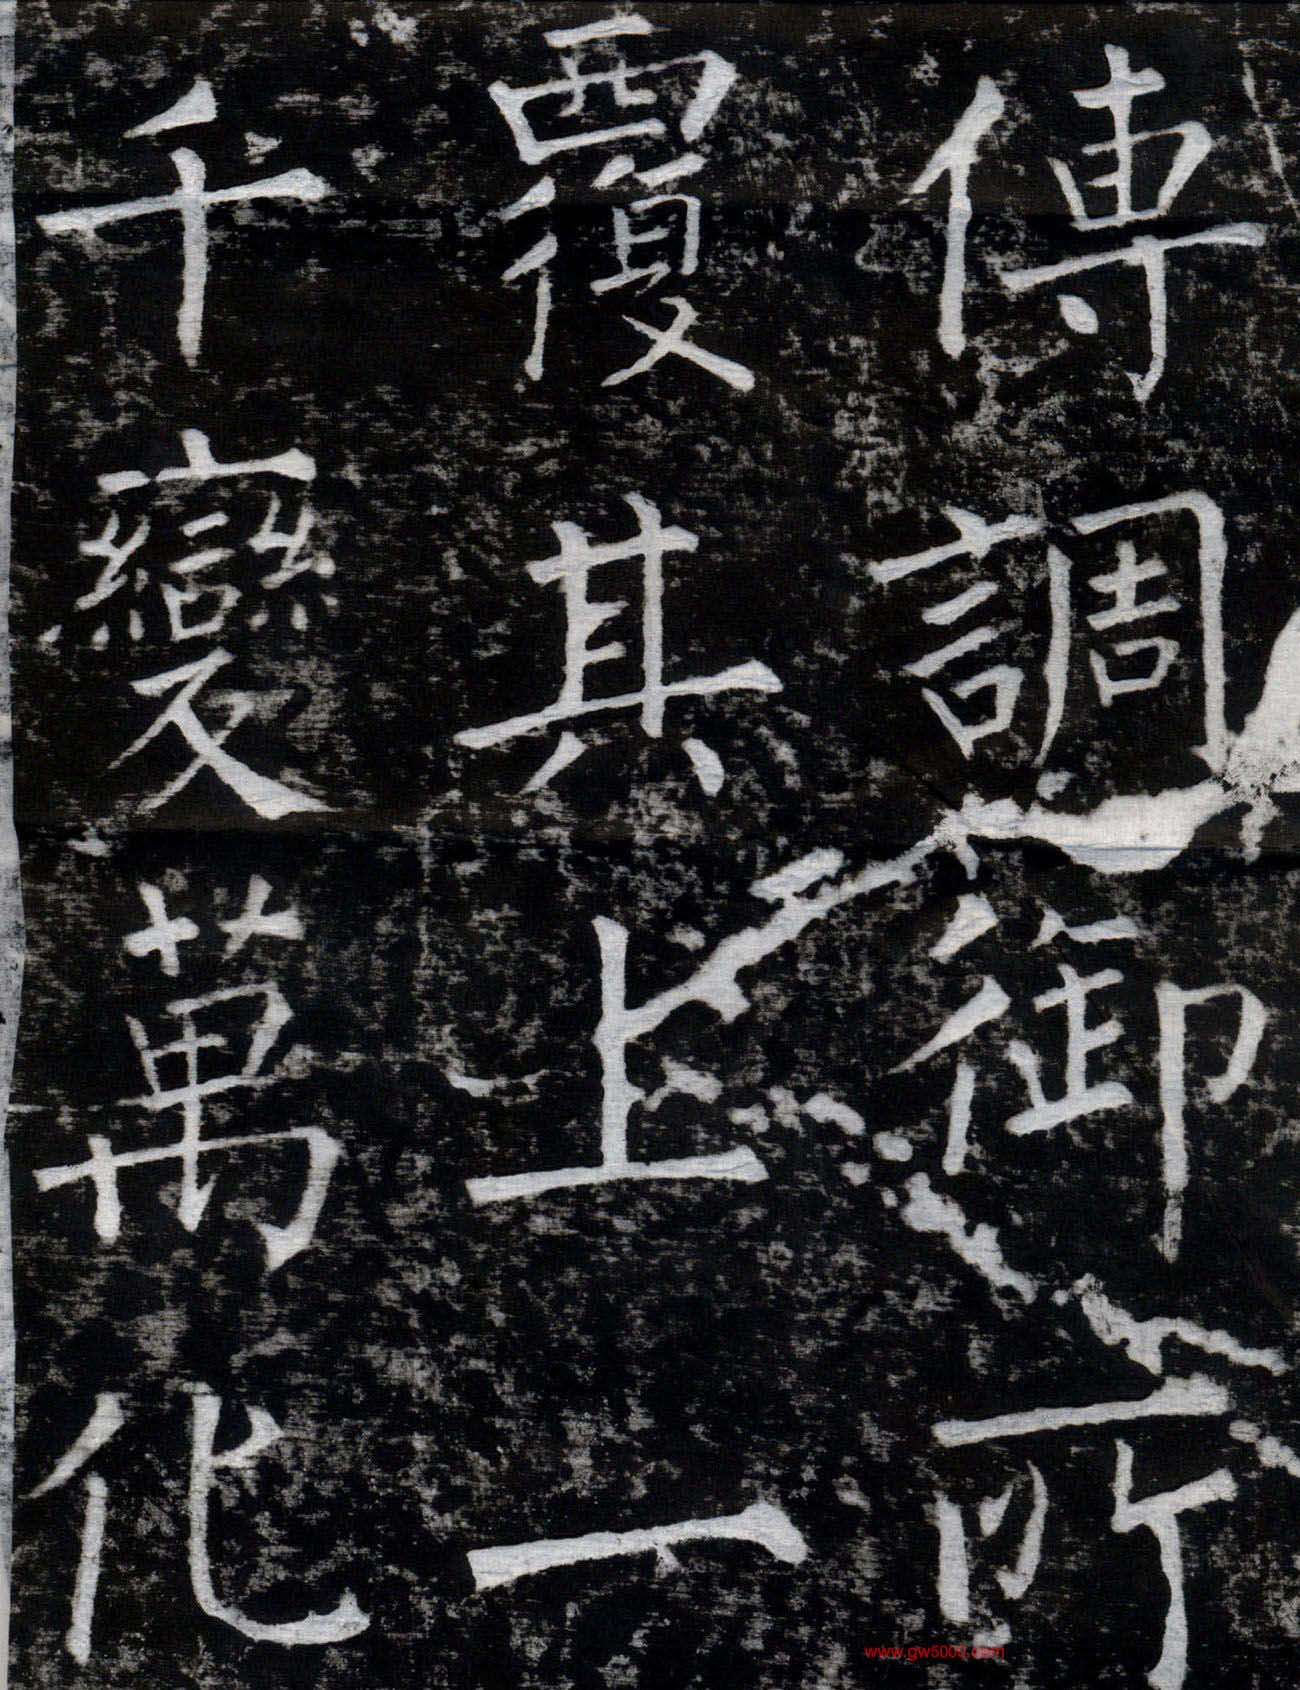 傳調御所
覆其上一
千變萬化
www.gw5000.com